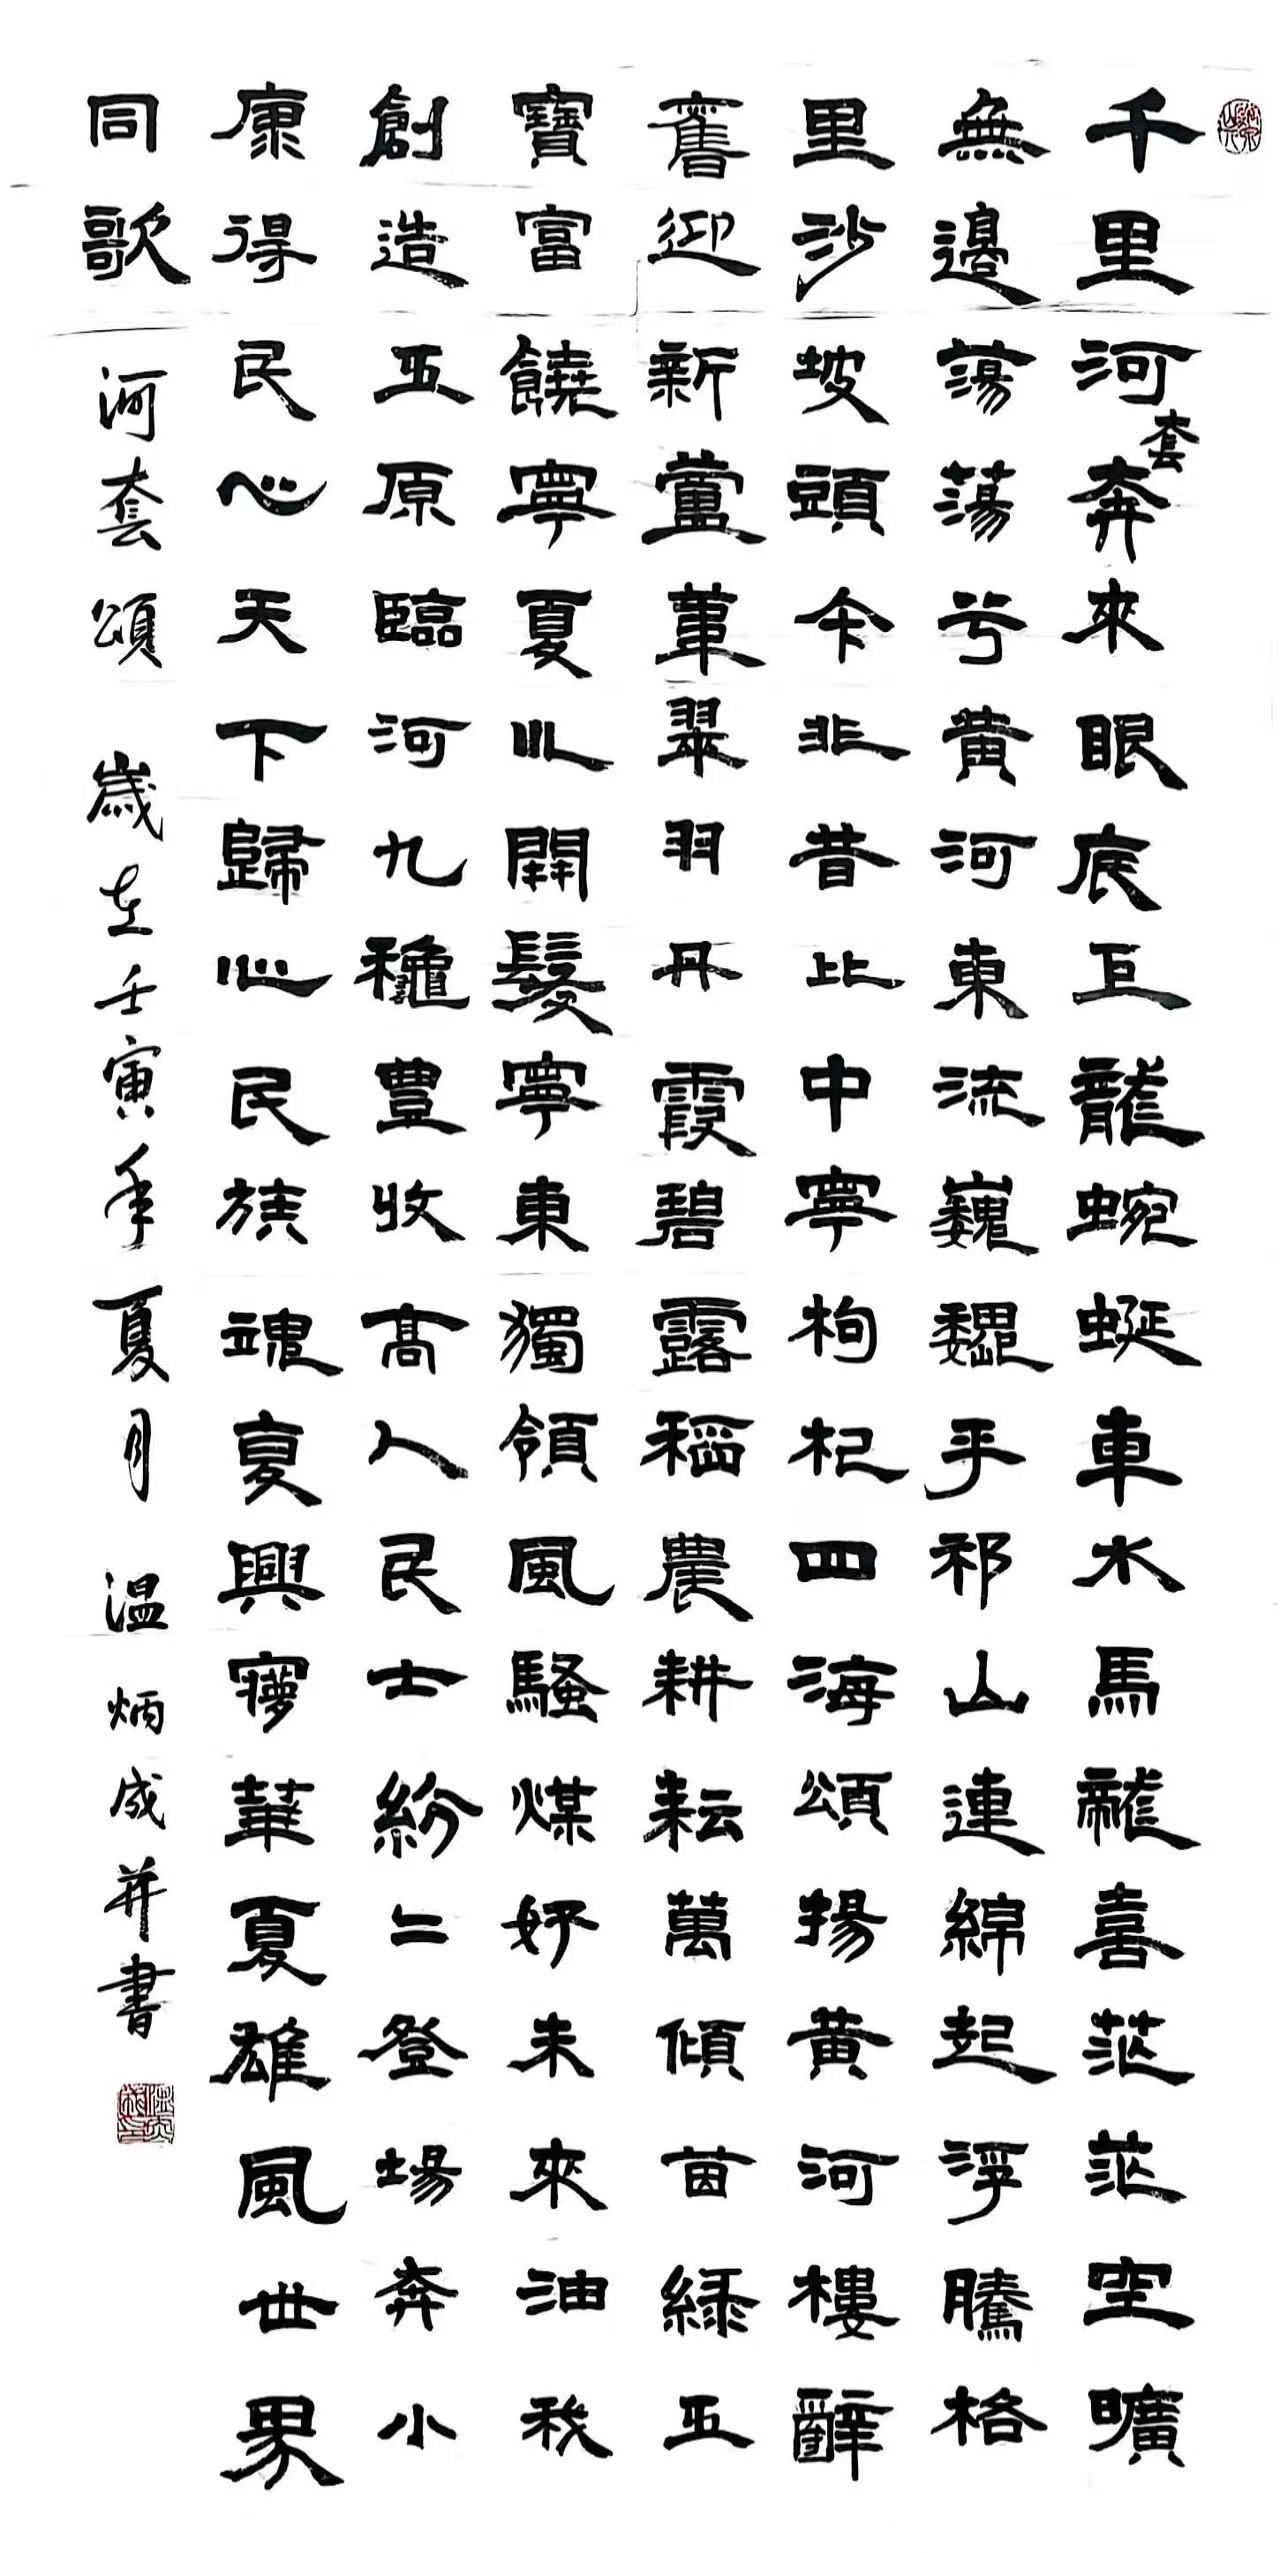 千里河套奔來眼底巨龍蜿蜒車水馬龍喜茫茫空曠
無邊蕩蕩兮黃河東流巍巍乎祁山連綿起浮騰格
里沙坡頭今非昔比中寧枸杞四海頌揚黃河樓辭
舊迎新蘆葦翠羽丹霞碧露稻農耕耘萬傾茵綠五
寶富饒寧夏川開發寧東獨領風騷煤好未來油我
創造五原臨河九穗豐收高人民士紛紛登場奔小
康得民心天下歸心民族魂夏興寧華夏雄風世界
同歌
河套頌
歲在壬寅年夏月
溫炳成并書